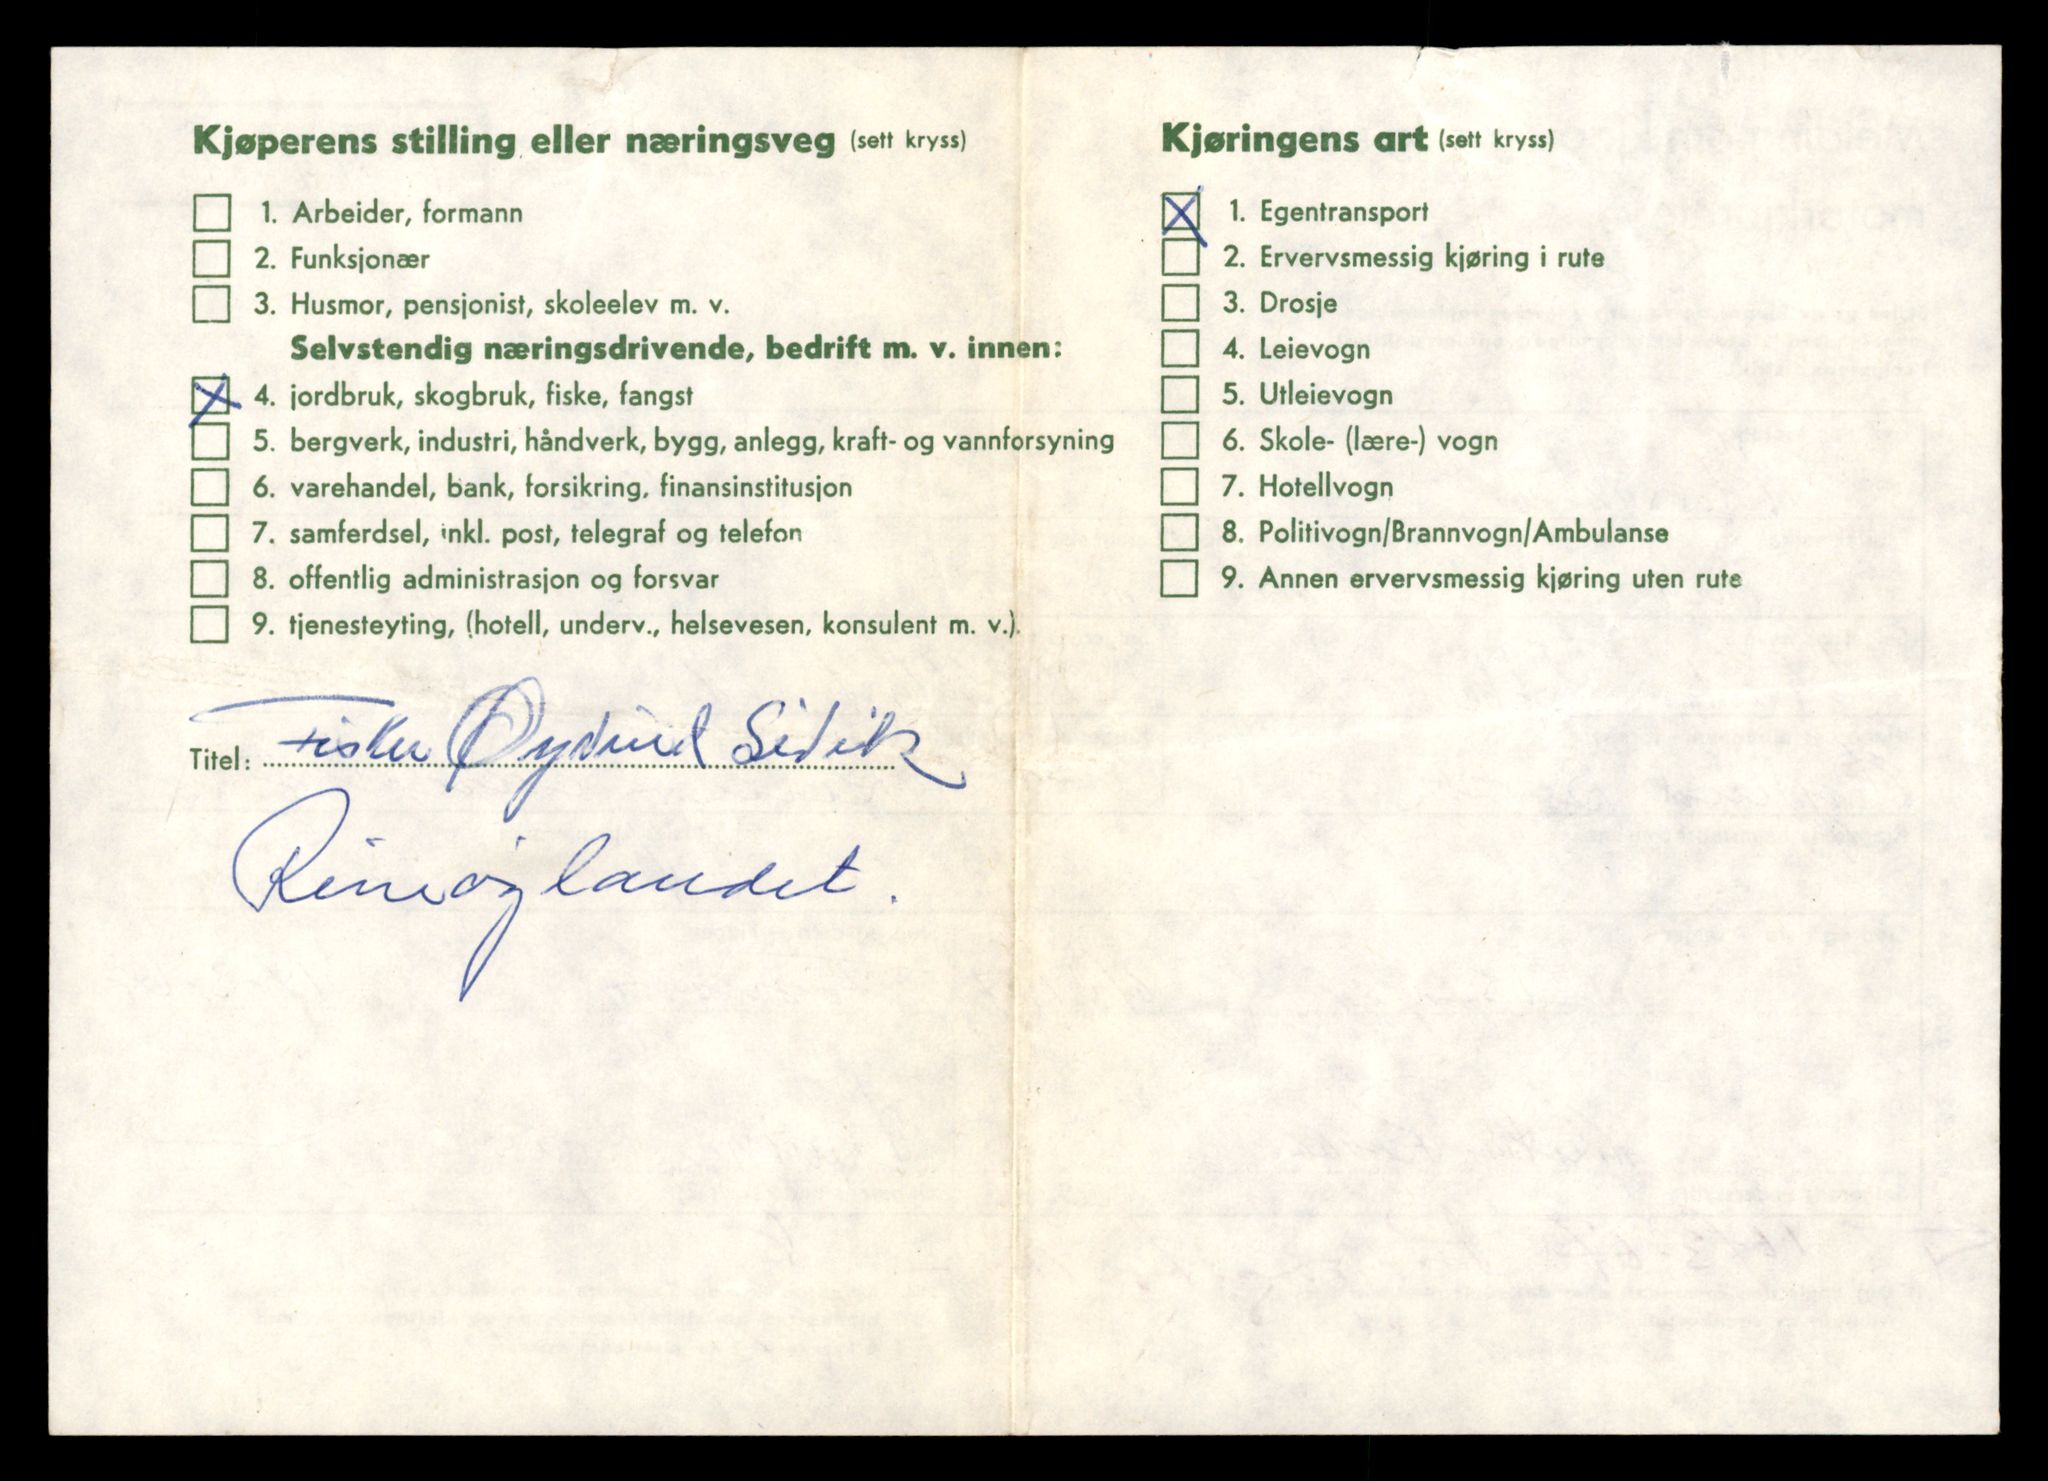 Kjøperens stilling eller næringsveg (sett kryss)
1. Arbeider, formann
2. Funksjonær
3. Husmor, pensjonist, skoleelev m. v.
Selvstendig næringsdrivende, bedrift m. v. innen:
4. jordbruk, skogbruk, fiske, fangst
5. bergverk, industri, håndverk, bygg, anlegg, kraft- og vannforsyning
6. varehandel, bank, forsikring, finansinstitusjon
7. samferdsel, inkl. post, telegraf og telefon
8. offentlig administrasjon og forsvar
9. tjenesteyting, (hotell, underv., helsevesen, konsulent m. v.).
Titel: Fisker Øydvind
Kjøringens art (sett kryss)
1. Egentransport
2. Ervervsmessig kjøring i rute
3. Drosje
4. Leievogn
5. Utleievogn
6. Skole- (lære-) vogn
7. Hotellvogn
8. Politivogn/Brannvogn/Ambulanse
9. Annen ervervsmessig kjøring uten rute